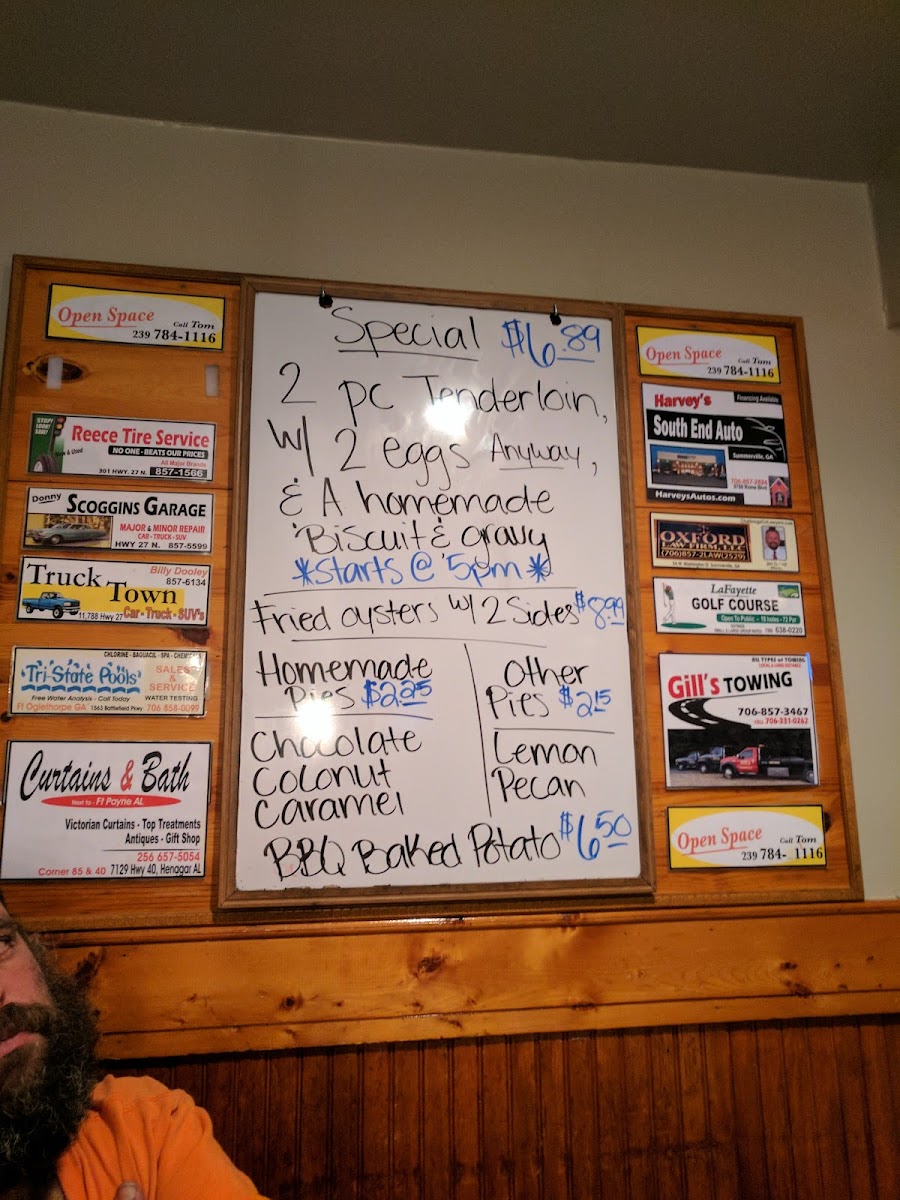 Open Space
Call Tom
239 784-1116
Reece Tire Service
NO ONE - BEATS OUR PRICES
All Major Brands
301 HWY. 27 N. 857-1566
Donny
SCOGGINS GARAGE
MAJOR & MINOR REPAIR
CAR - TRUCK - SUV
HWY 27 N. 857-5599
Truck Town
Billy Dooley
857-6134
11,788 Hwy 27 Car - Truck - SUV's
CHLORINE - BAQUACIL - SPA - CHEMICALS
Tri-State Pools
SALES & SERVICE
Free Water Analysis - Call Today
WATER TESTING
Ft Oglethorpe GA 1563 Battlefield Pkwy 706 858-0099
Curtains & Bath
Next to - Ft Payne AL
Victorian Curtains - Top Treatments
Antiques - Gift Shop
256 657-5054
Corner 85 & 40 7129 Hwy 40, Henagar AL
Special $6.89
2 pc Tenderloin,
w/ 2 eggs Anyway,
& A homemade
Biscuit & gravy
*Starts @ 5pm*
Fried oysters w/ 2 Sides $8.99
Homemade
Pies $2.25
Chocolate
Coconut
Caramel
Other
Pies $2.15
Lemon
Pecan
BBQ Baked Potato $6.50
Open Space
Call Tom
239 784-1116
Harvey's
Financing Available
South End Auto
Summerville, GA
HarveysAutos.com
OXFORD
LAW FIRM, LLC
(706)857-2LAW(2529)
LaFayette
GOLF COURSE
Open To Public - 18 holes - 72 Par
638-0220
ALL TYPES of TOWING
LOCAL & LONG DISTANCE
Gill's TOWING
706-857-3467
CELL 706-331-0262
Open Space
Call Tom
239 784- 1116